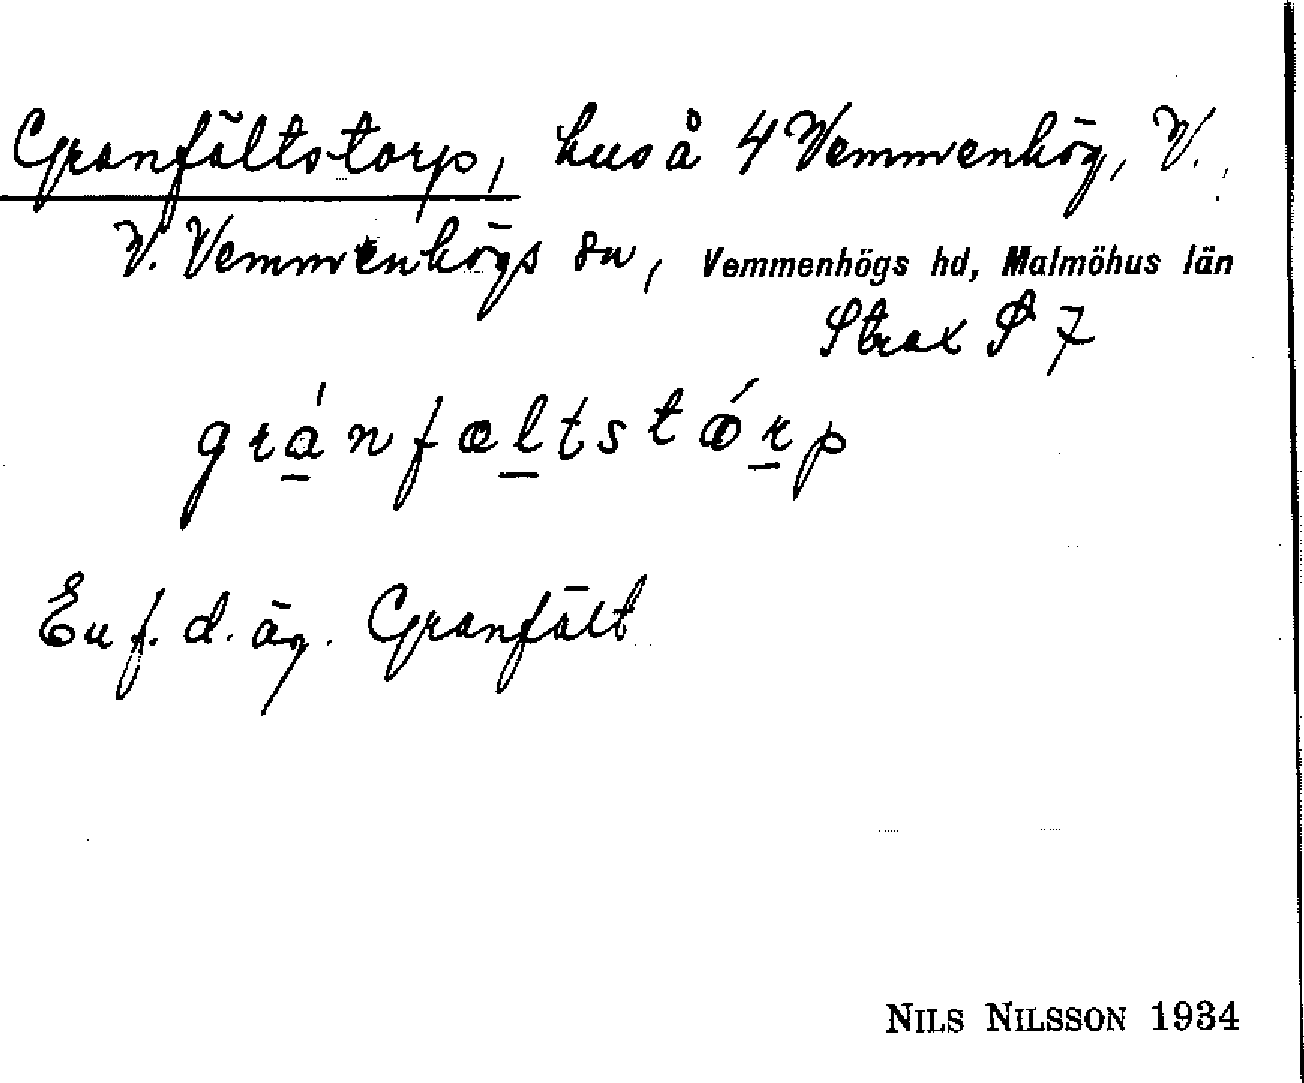 Granfältstorp, hus å 4 Vemmenhög, V.,
V. Vemmenhögs sn, Vemmenhögs hd, Malmöhus län
Strax S 7
gránfæltstǿrp
En f. d. äg. Granfält
NILS NILSSON 1934